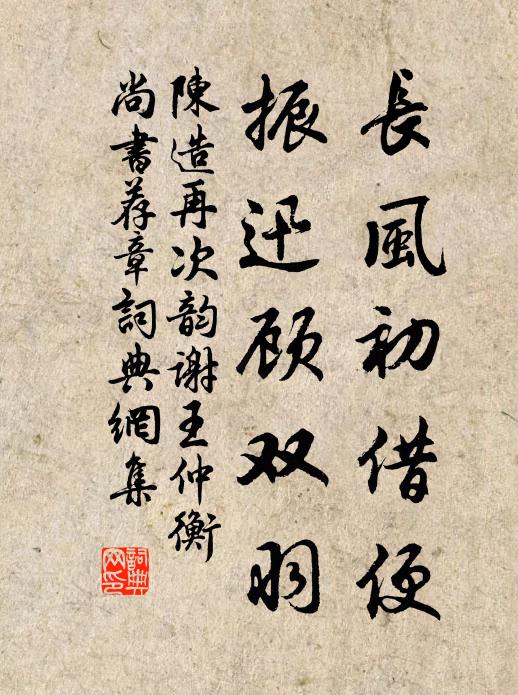 長風初借便
振迅顾双羽
陳造再次韵谢王仲衡
尚書荐章詞典網集
詞典网印